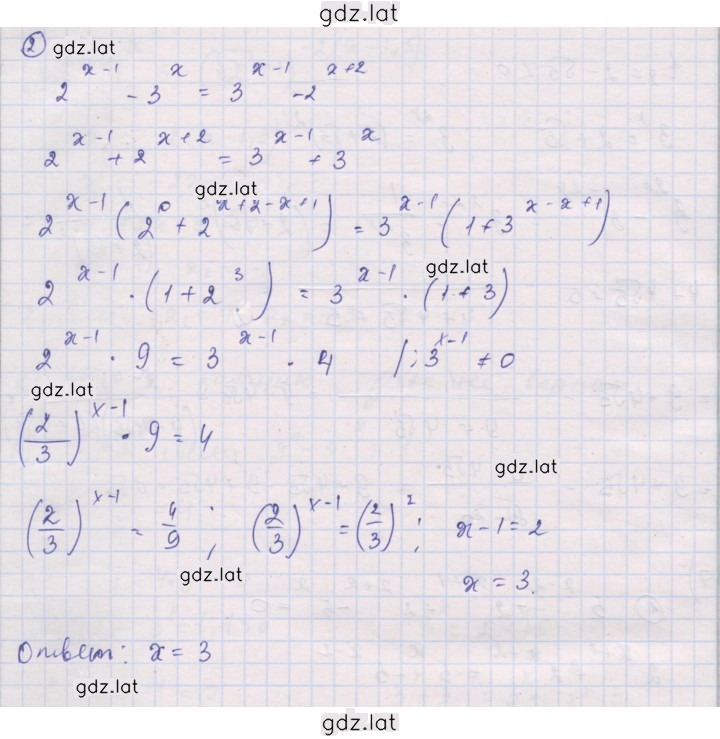 gdz.lat
② gdz.lat
2^(x-1) - 3^x = 3^(x-1) - 2^(x+2)
2^(x-1) + 2^(x+2) = 3^(x-1) + 3^x
gdz.lat
2^(x-1) (2^0 + 2^(x+2-x+1)) = 3^(x-1) (1+3^(x-x+1))
gdz.lat
2^(x-1) · (1+2^3) = 3^(x-1) · (1+3)
2^(x-1) · 9 = 3^(x-1) · 4 /: 3^(x-1) ≠ 0
gdz.lat
(2/3)^(x-1) · 9 = 4
gdz.lat
(2/3)^(x-1) = 4/9 ; (2/3)^(x-1) = (2/3)^2 ; x-1=2
gdz.lat
x = 3.
Ответ: x = 3
gdz.lat
gdz.lat